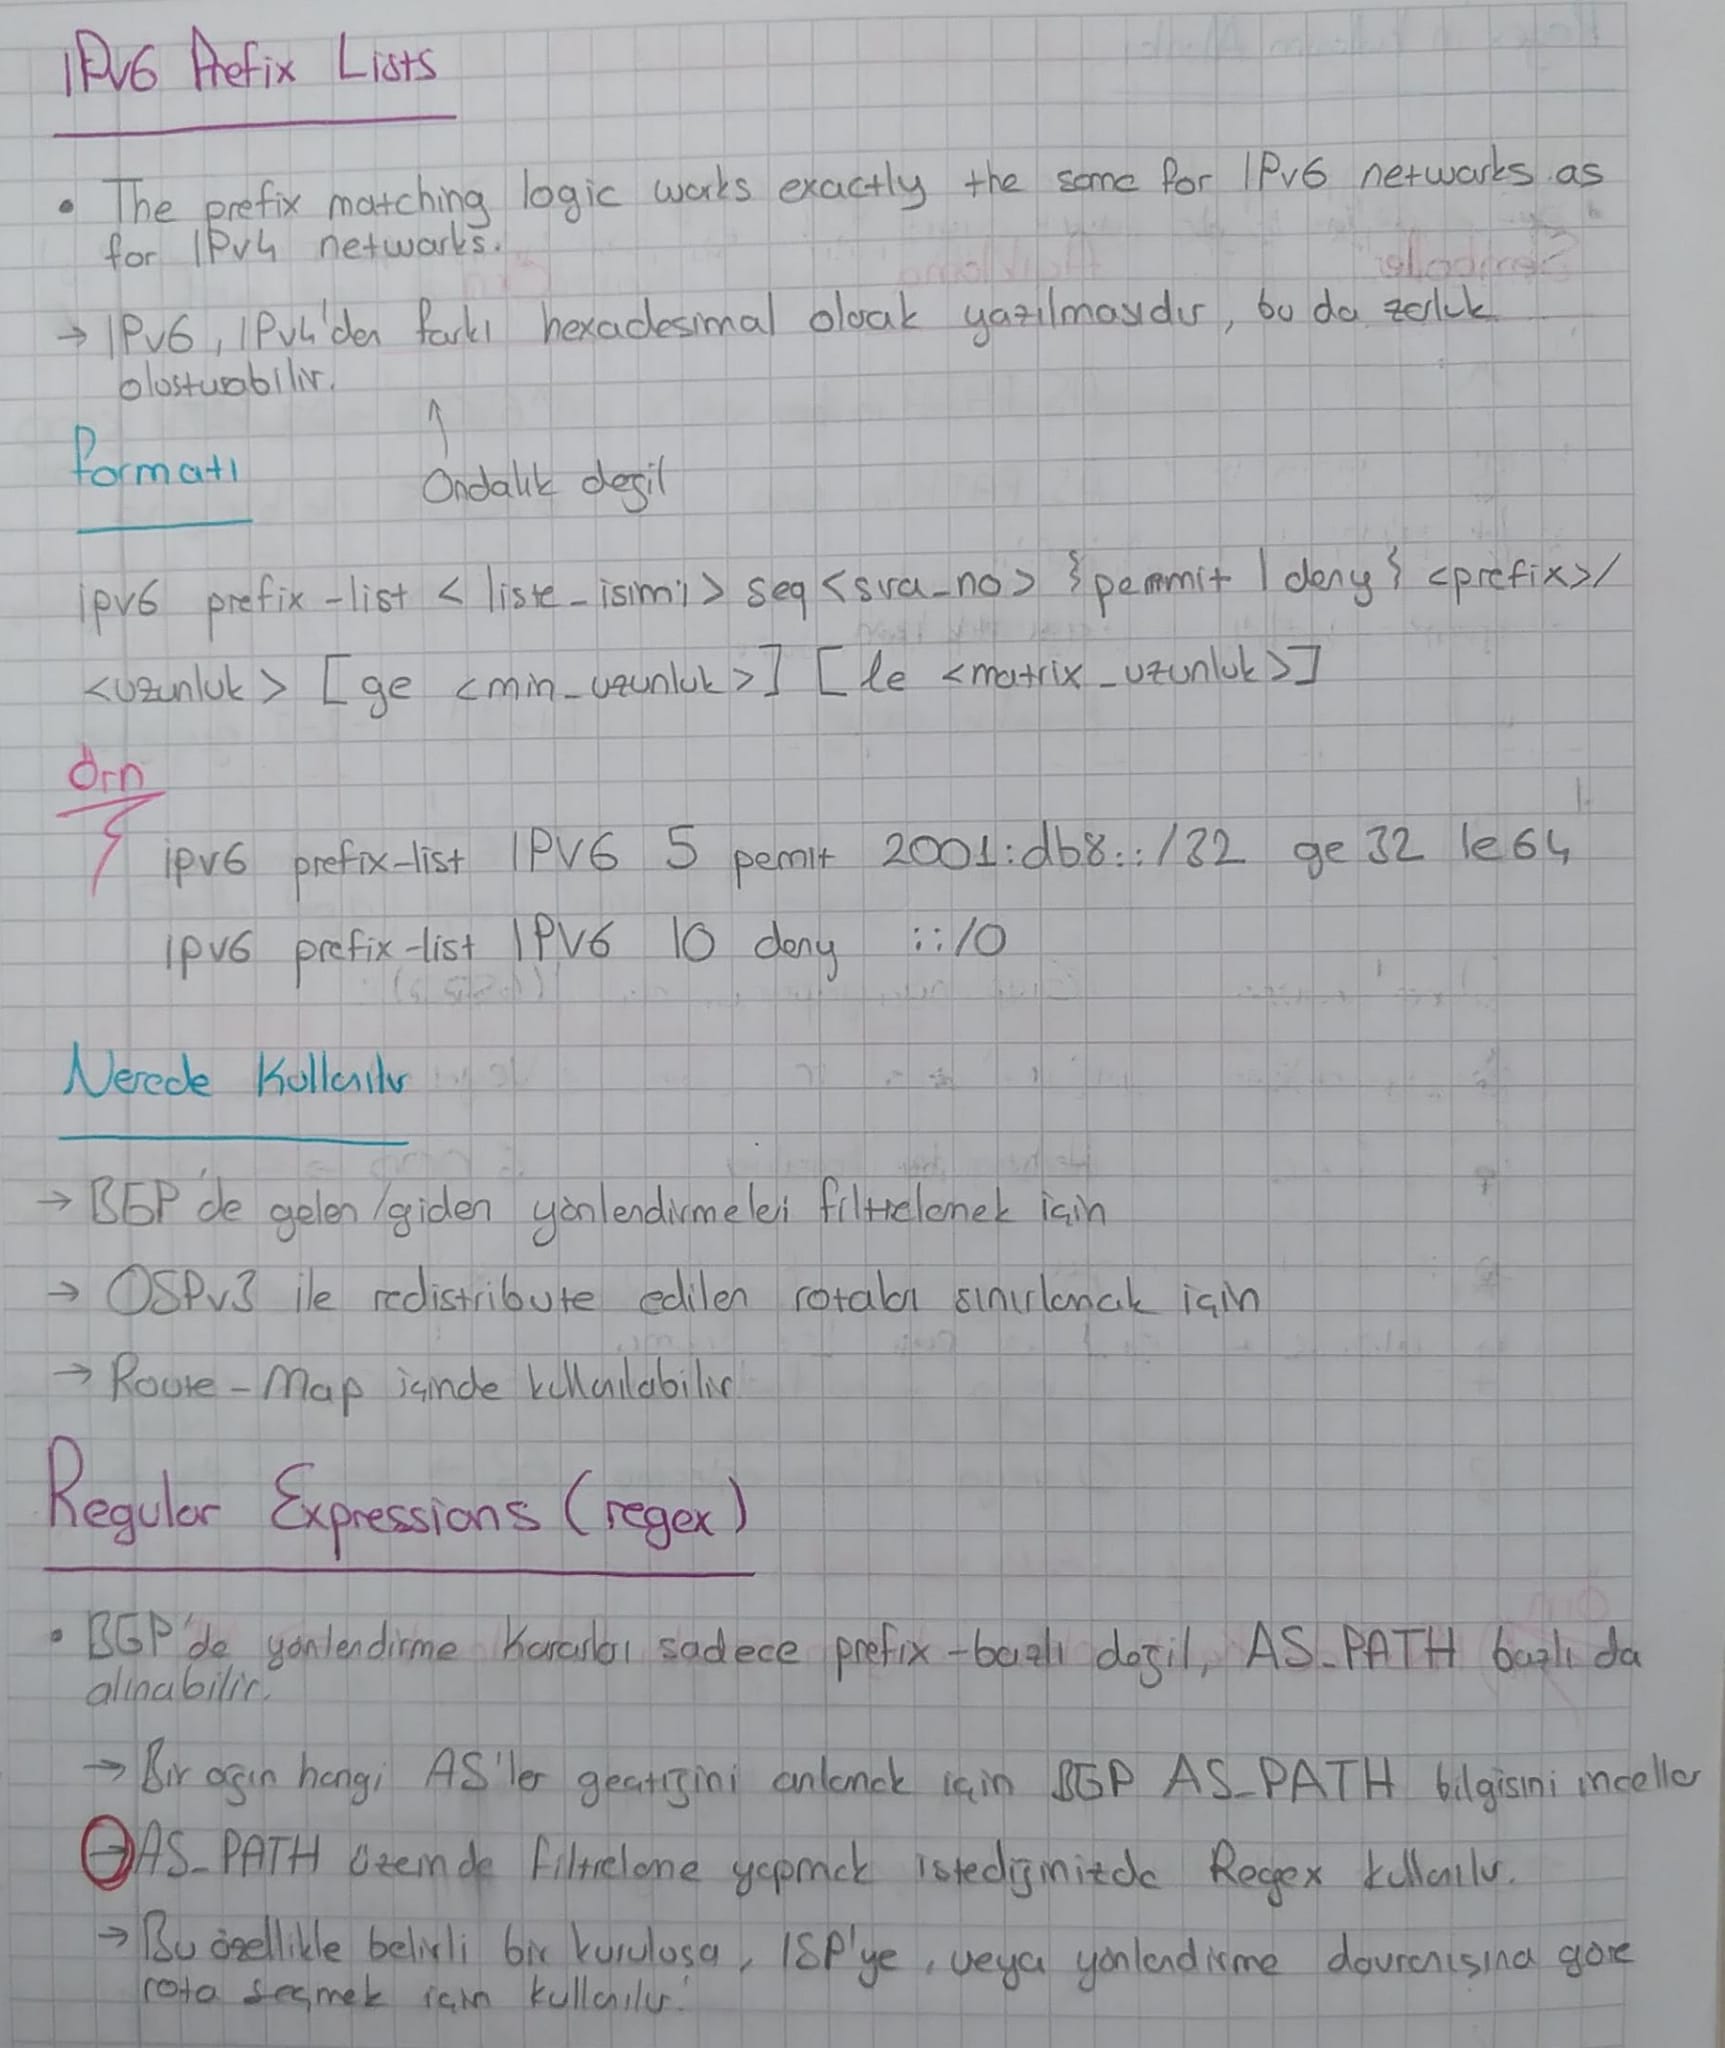 IPv6 Prefix Lists
• The prefix matching logic works exactly the same for IPv6 networks as
for IPv4 networks.
→ IPv6, IPv4'den farkı hexadesimal olarak yazılmasıdır, bu da zorluk
oluşturabilir.
↑
Formatı
Ondalık değil
ipv6 prefix-list < liste_isimi> seq <sıra_no> {permit | deny} <prefix>/
<uzunluk> [ge <min_uzunluk>] [le <matrix_uzunluk>]
Örn
ipv6 prefix-list IPV6 5 permit 2001:db8::/32 ge 32 le 64
ipv6 prefix-list IPV6 10 deny ::/0
Nerede Kullanılır
→ BGP'de gelen/giden yönlendirmeleri filtrelemek için
→ OSPv3 ile redistribute edilen rotaları sınırlamak için
→ Route-Map içinde kullanılabilir
Regular Expressions (regex)
• BGP'de yönlendirme kararları sadece prefix-bazlı değil, AS_PATH bazlı da
alınabilir.
→ Bir ağın hangi AS'ler geçtiğini anlamak için BGP AS_PATH bilgisini inceller
→ AS_PATH üzerinde filtreleme yapmak istediğimizde Regex kullanılır.
→ Bu özellikle belirli bir kuruluşa, ISP'ye, veya yönlendirme davranışına göre
rota seçmek için kullanılır.